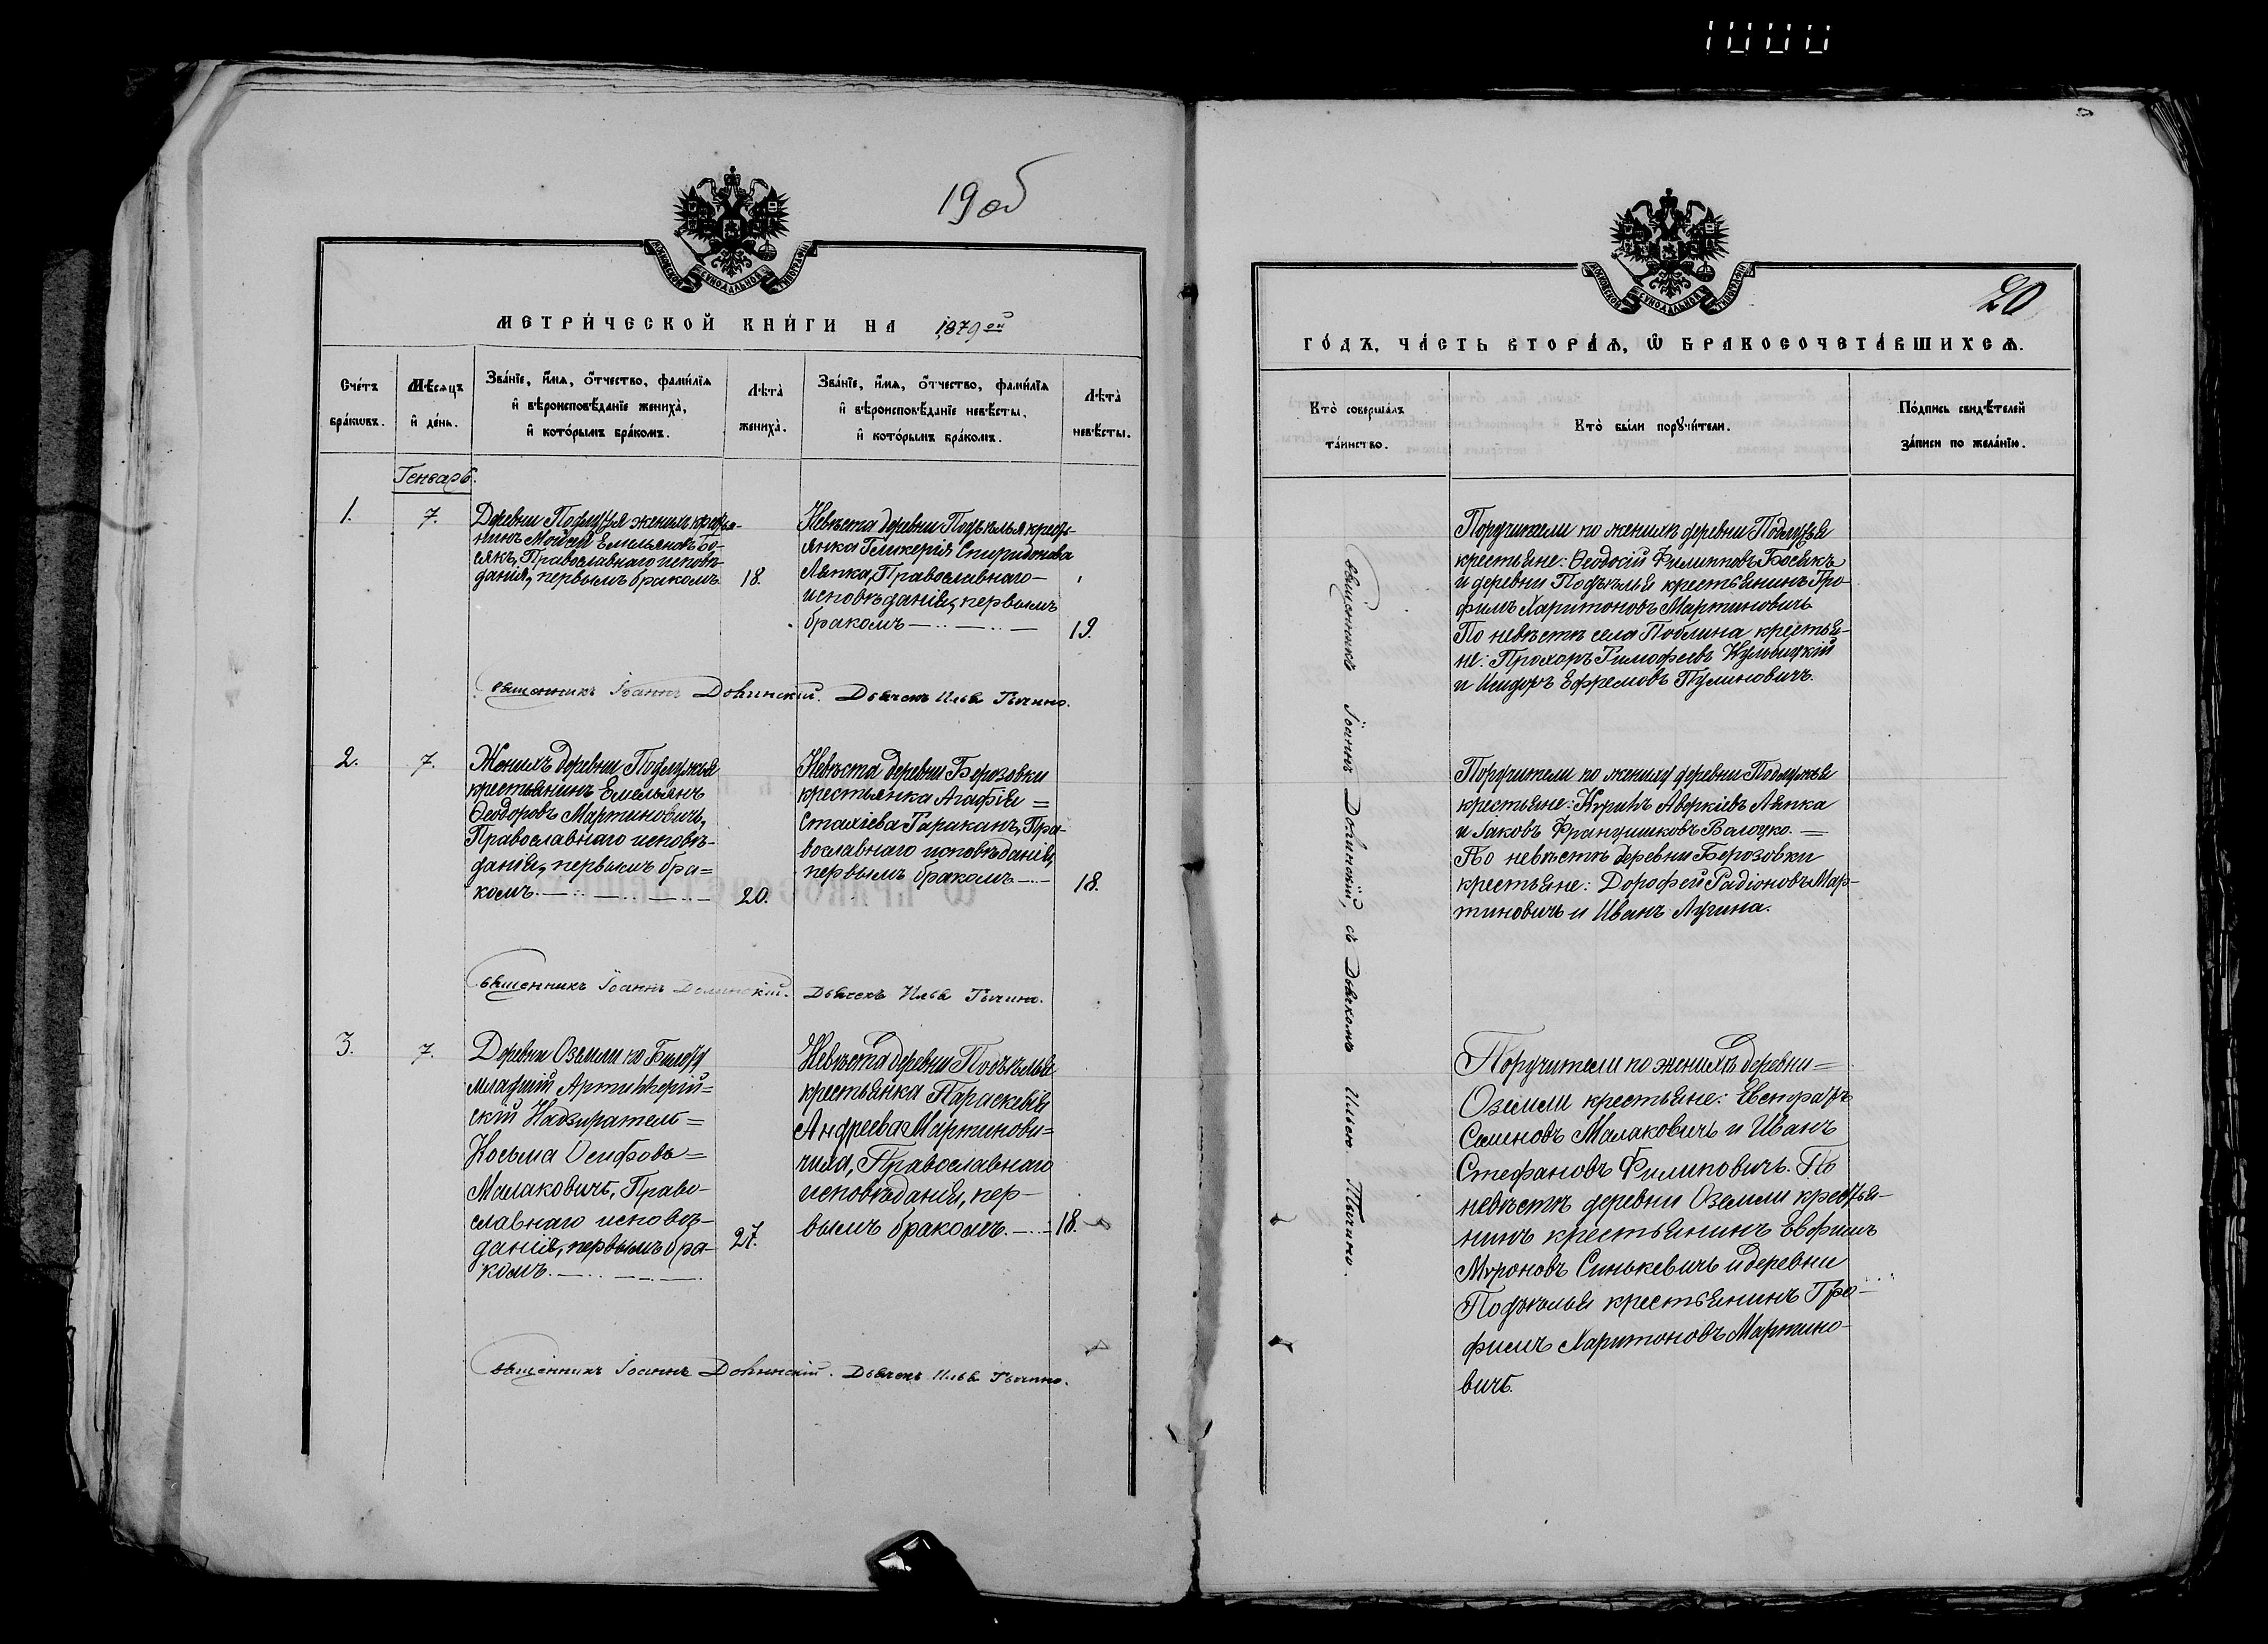 19 об
МОСКОВСКОЙ СУНОДАЛЬНОЙ ТИПОГРАФІИ
МЕТРИ́ЧЕСКОЙ КНИ́ГИ НА 1879 ой
Сче́тъ бра́кωвъ.
Мѣ́сяцъ и҆ де́нь.
Зва́нїе, и҆́мя, ѻ҆́тчество, фами́лїя и҆ вѣроисповѣ́данїе жениха̀, и҆ кото́рымъ бра́комъ.
Лѣ́та̀ жениха̀.
Зва́нїе, и҆́мя, ѻ҆́тчество, фами́лїя и҆ вѣроисповѣ́данїе невѣ́сты, и҆ кото́рымъ бра́комъ.
Лѣ́та̀ невѣ́сты.
Генварь.
1.
7.
Деревни Подлужья женихъ кресть-
нинъ Моисей Емельяновъ Бо-
сякъ, Православнаго исповѣ-
данія, первымъ бракомъ
18.
Невѣста деревни Подъѣлья кресть-
янка Гликерія Спиридонова
Ляпка, Православнаго —
исповѣданія, первымъ
бракомъ
19.
Священникъ Іоаннъ Долинскій. Дьячекъ Илья Тычино.
2.
7.
Женихъ деревни Подлужья
крестьянинъ Емельянъ
Ѳеодоровъ Мартиновичъ,
Православнаго исповѣ-
данія, первымъ бра=
комъ.
20.
Невѣста деревни Берозовки
крестьянка Агафія =
Стахіева Тараканъ, Пра-
вославнаго исповѣданія,
первымъ бракомъ
18.
Священникъ Іоаннъ Долинскій. Дьячекъ Илья Тычино.
3.
7.
Деревни Оземли по Билету
младшій Артиллерій=
скій Надзиратель =
Косьма Осифовъ =
Малаковичъ, Право-
славнаго исповѣ-
данія, первымъ бра-
комъ.
27.
Невѣста деревни Подъѣлья
крестьянка Параскевія
Андреева Мартинови=
чила, Православнаго
исповѣданія, пер-
вымъ бракомъ.
18.
Священникъ Іоаннъ Долинскій. Дьячекъ Илья Тычино.
20
МОСКОВСКОЙ СУНОДАЛЬНОЙ ТИПОГРАФІИ
ГО́ДЪ, ЧА́СТЬ ВТОРА́Ѧ, Ѽ БРАКОСОЧЕТА́ВШИХСѦ.
Кто̀ соверша́лъ та́инство.
Кто̀ бы́ли порꙋчи́тели.
По́дпись свидѣ́телей за́писи по жела́нїю.
Священникъ Іоаннъ Долинскій, съ Дьячкомъ Ильею Тычино.
Поручители по женихѣ деревни Подлужья
крестьяне: Ѳеодосій Филипповъ Босякъ
и деревни Подъѣлья крестьянинъ Тро-
фимъ Харитоновъ Мартиновичъ
По невѣстѣ села Поблина крестья-
не: Прохоръ Тимофеевъ Кульбицкій
и Исидоръ Ефремовъ Тулиновичъ.
Поручители по жениху деревни Подлужья
крестьяне: Кѵрилъ Аверкіевъ Ляпка
и Іаковъ Францишковъ Волоцко. =
По невѣстѣ деревни Берозовки
крестьяне: Дорофей Радіоновъ Мар-
тиновичъ и Иванъ Лучина.
Поручители по женихѣ деревни =
Оземли крестьяне: Евстратъ
Семеновъ Малаковичъ и Иванъ
Стефановъ Филиповичъ. По
невѣстѣ деревни Оземли крестья-
нинъ крестьянинъ Евфимъ
Мѵроновъ Синькевичъ и деревни
Подъѣлья крестьянинъ Тро-
фимъ Харитоновъ Мартино-
вичъ.